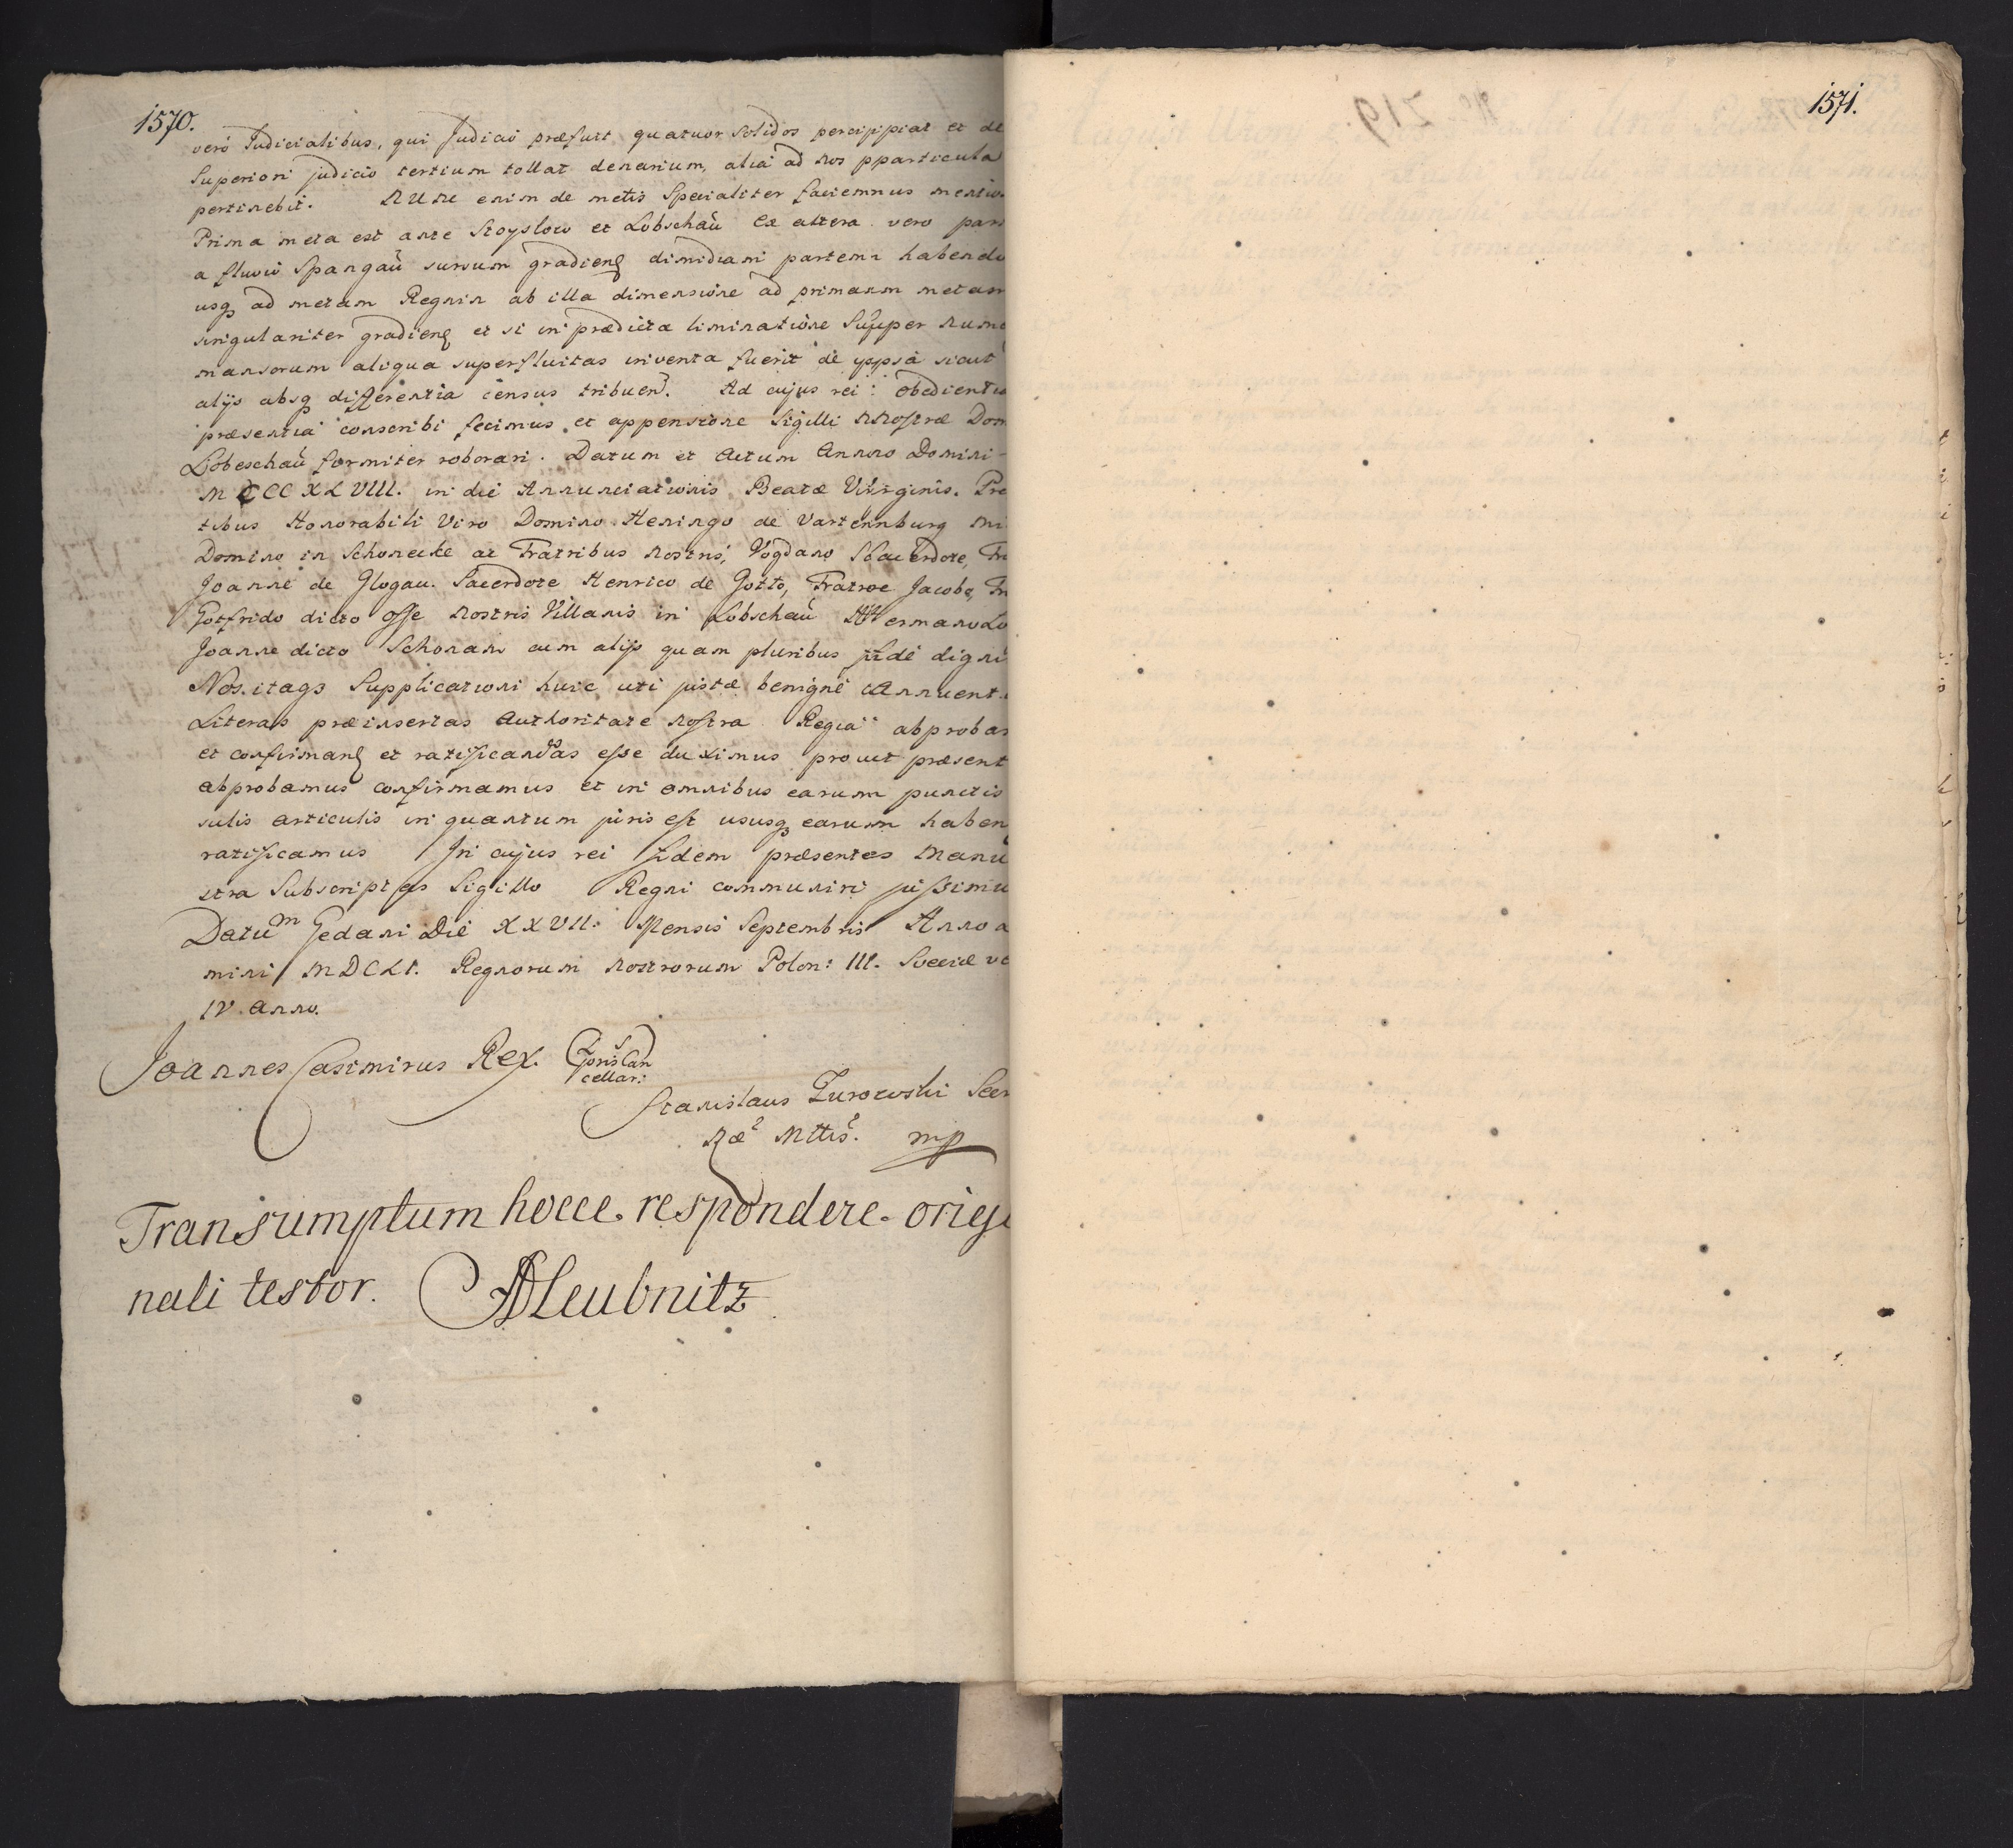 1570.
vero Judicialibus, qui Judicio præfuit quatuor solidos percippiat et de
Superiori judicio tertium tollat denarium, alia ad nos pparticula
pertinebit. NUNc enim de metis Specialiter faciemnus mentio
Prima meta est ante Stoyslow et Lobschaŭ Ex altera vero par
a fluvio Spangaŭ sursum gradienς dimidiam partem habendo
usqꝫ ad metam Regnin ab illa dimensione ad primamm metam
singulariter gradienς et si in prædicta liminatione Supper nume
mansorum aliqua superfluitas inventa fuerit de yppsa sicut
alijs absqꝫ differentia census tribuen. Ad cujus rei: obedientia
præsentia conscribi fecimus et appensione Sigilli NNostræ Dom
Lobeschaŭ formiter roborari. Datum et Actum Annno Domini-
MCCCXLVIII. in die Annunciationis Beatæ Virginis. Præ
tibus Honorabili Viro Domino Heningo de Vartennburg Mi
Domino in Schonecke ac Fratribus nostris, Vogdano Sacerdote, Fr
Joanne de Glogau. Sacerdote Henrico de Gotto, Fratre Jacobo, Fr
Gotfrido dicto Osse nostris Villanis in Lobschaŭ Hermano Lo
Joanne dicto Schonan cum alijs quam pluribus fide digni
Nos. itaqꝫ Supplicationi huic uti justæ benigné Annuent
Literas præinsertas Authoritate nostra Regia abproban
et confirmanς et ratificandas esse duximus prout præsent
abprobamus confirmamus et in omnibus earumm punctis
sulis articulis in quantum juris est ususqꝫ earumm haben
ratificamus In cujus rei fidem præsentes Manu
stra Subscriptas Sigillo Regni communiri jussimu
Datum Gedani Die XXVII. Mensis Septembris Anno
mini MDCLI. Regnorum nostrorum Polon: III. Sveciæ ve
IV. Anno.
Joannes Casimirus Rex. (L S
joris Can
cellar:)
Stanislaus Zurowski Secr
Ræ Mttis. mp
Transumptum hocce respondere origi
nali testor. ADLeubnitz
1571.